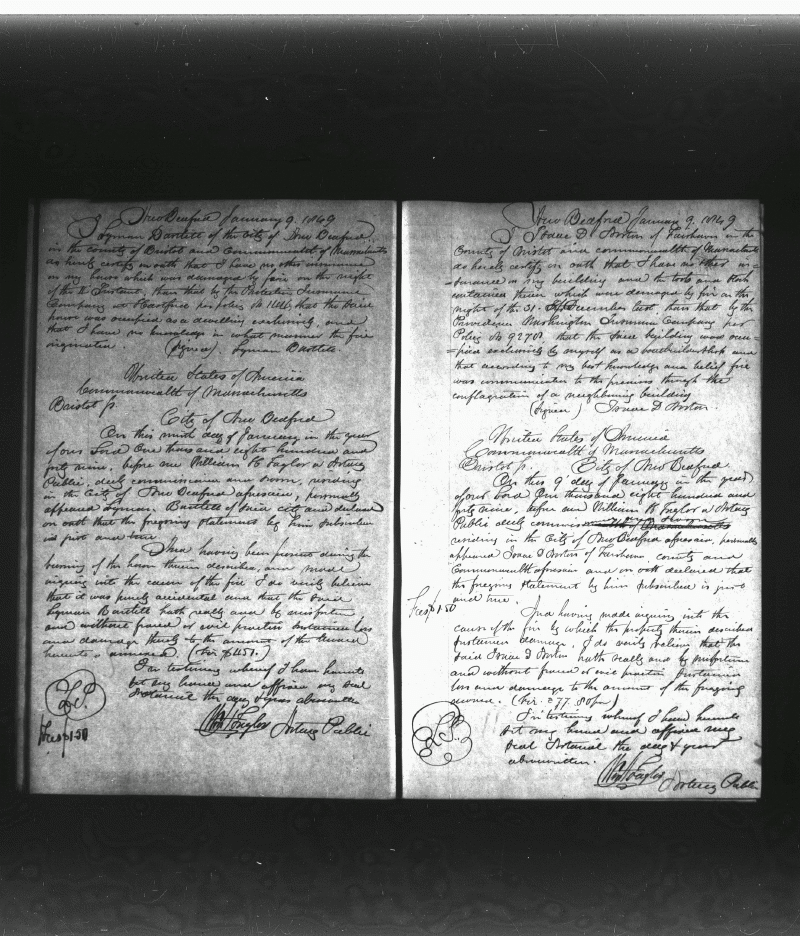 New Bedford January 9. 1849
I Lyman Bartlett of the City of New Bedford,
in the County of Bristol and Commonwealth of Massachusetts
do hereby certify on oath that I have no other insurance
on my house which was damaged by fire on the night
of the Instant, than that by the Protection Insurance
Company at Hartford per policy No that the said
house was occupied as a dwelling exclusively, and
that I have no knowledge in what manner the fire
originated. (signed) Lyman Bartlett
United States of America
Commonwealth of Massachusetts
Bristol
City of New Bedford
On this ninth day of January in the year
of our Lord One thousand eight hundred and
forty nine, before me William H Taylor a Notary
Public, duly commissioned and sworn, residing
in the City of New Bedford aforesaid, personally
appeared Lyman Bartlett of said city and declared
on oath that the foregoing statement by him subscribed
is just and true
And having been present during the
burning of the house therein described, and made
inquiry into the cause of the fire I do verily believe
that it was purely accidental and that the said
Lyman Bartlett hath really and by misfortune
and without fraud or evil practice sustained loss
and damage thereby to the amount of the
hereunto annexed.
In testimony whereof I have hereunto
set my hand and affixed my seal
Notarial the day & year abovewritten
L.S.
Wm H Taylor Notary Public
Fees $1.50
New Bedford January 9. 1849
I Isaac D Boston of Fairhaven in the
County of Bristol and commonwealth of Massachusetts
do hereby certify on oath that I have no other in-
=surance on my building and the tools and stock
contained therein which were damaged by fire on the
night of the 31. December last, than that by the
Providence Washington Insurance Company per
Policy No 9270, that the said building was occu-
=pied exclusively by myself as a and
that according to my best knowledge and belief fire
was communicated to the premises through the
conflagration of a neighboring building
(signed) Isaac D Boston.
United States of America
Commonwealth of Massachusetts
Bristol City of New Bedford
On this 9 day of January in the year
of our Lord One thousand eight hundred and
forty nine, before me William H Taylor a Notary
Public duly
residing in the City of New Bedford aforesaid, personally
appeared Isaac D Boston of Fairhaven county and
Commonwealth aforesaid and on oath declared that
the foregoing statement by him subscribed is just
and true.
Fees $1.50
And having made inquiry into the
cause of the fire by which the property therein described
sustained damage, I do verily believe that the
said Isaac D Boston hath really and by misfortune
and without fraud or evil practice sustained
loss and damage to the amount of the foregoing
In testimony whereof I have hereunto
set my hand and affixed my
seal Notarial the day & year
abovewritten.
L.S.
Wm H Taylor
Notary Public